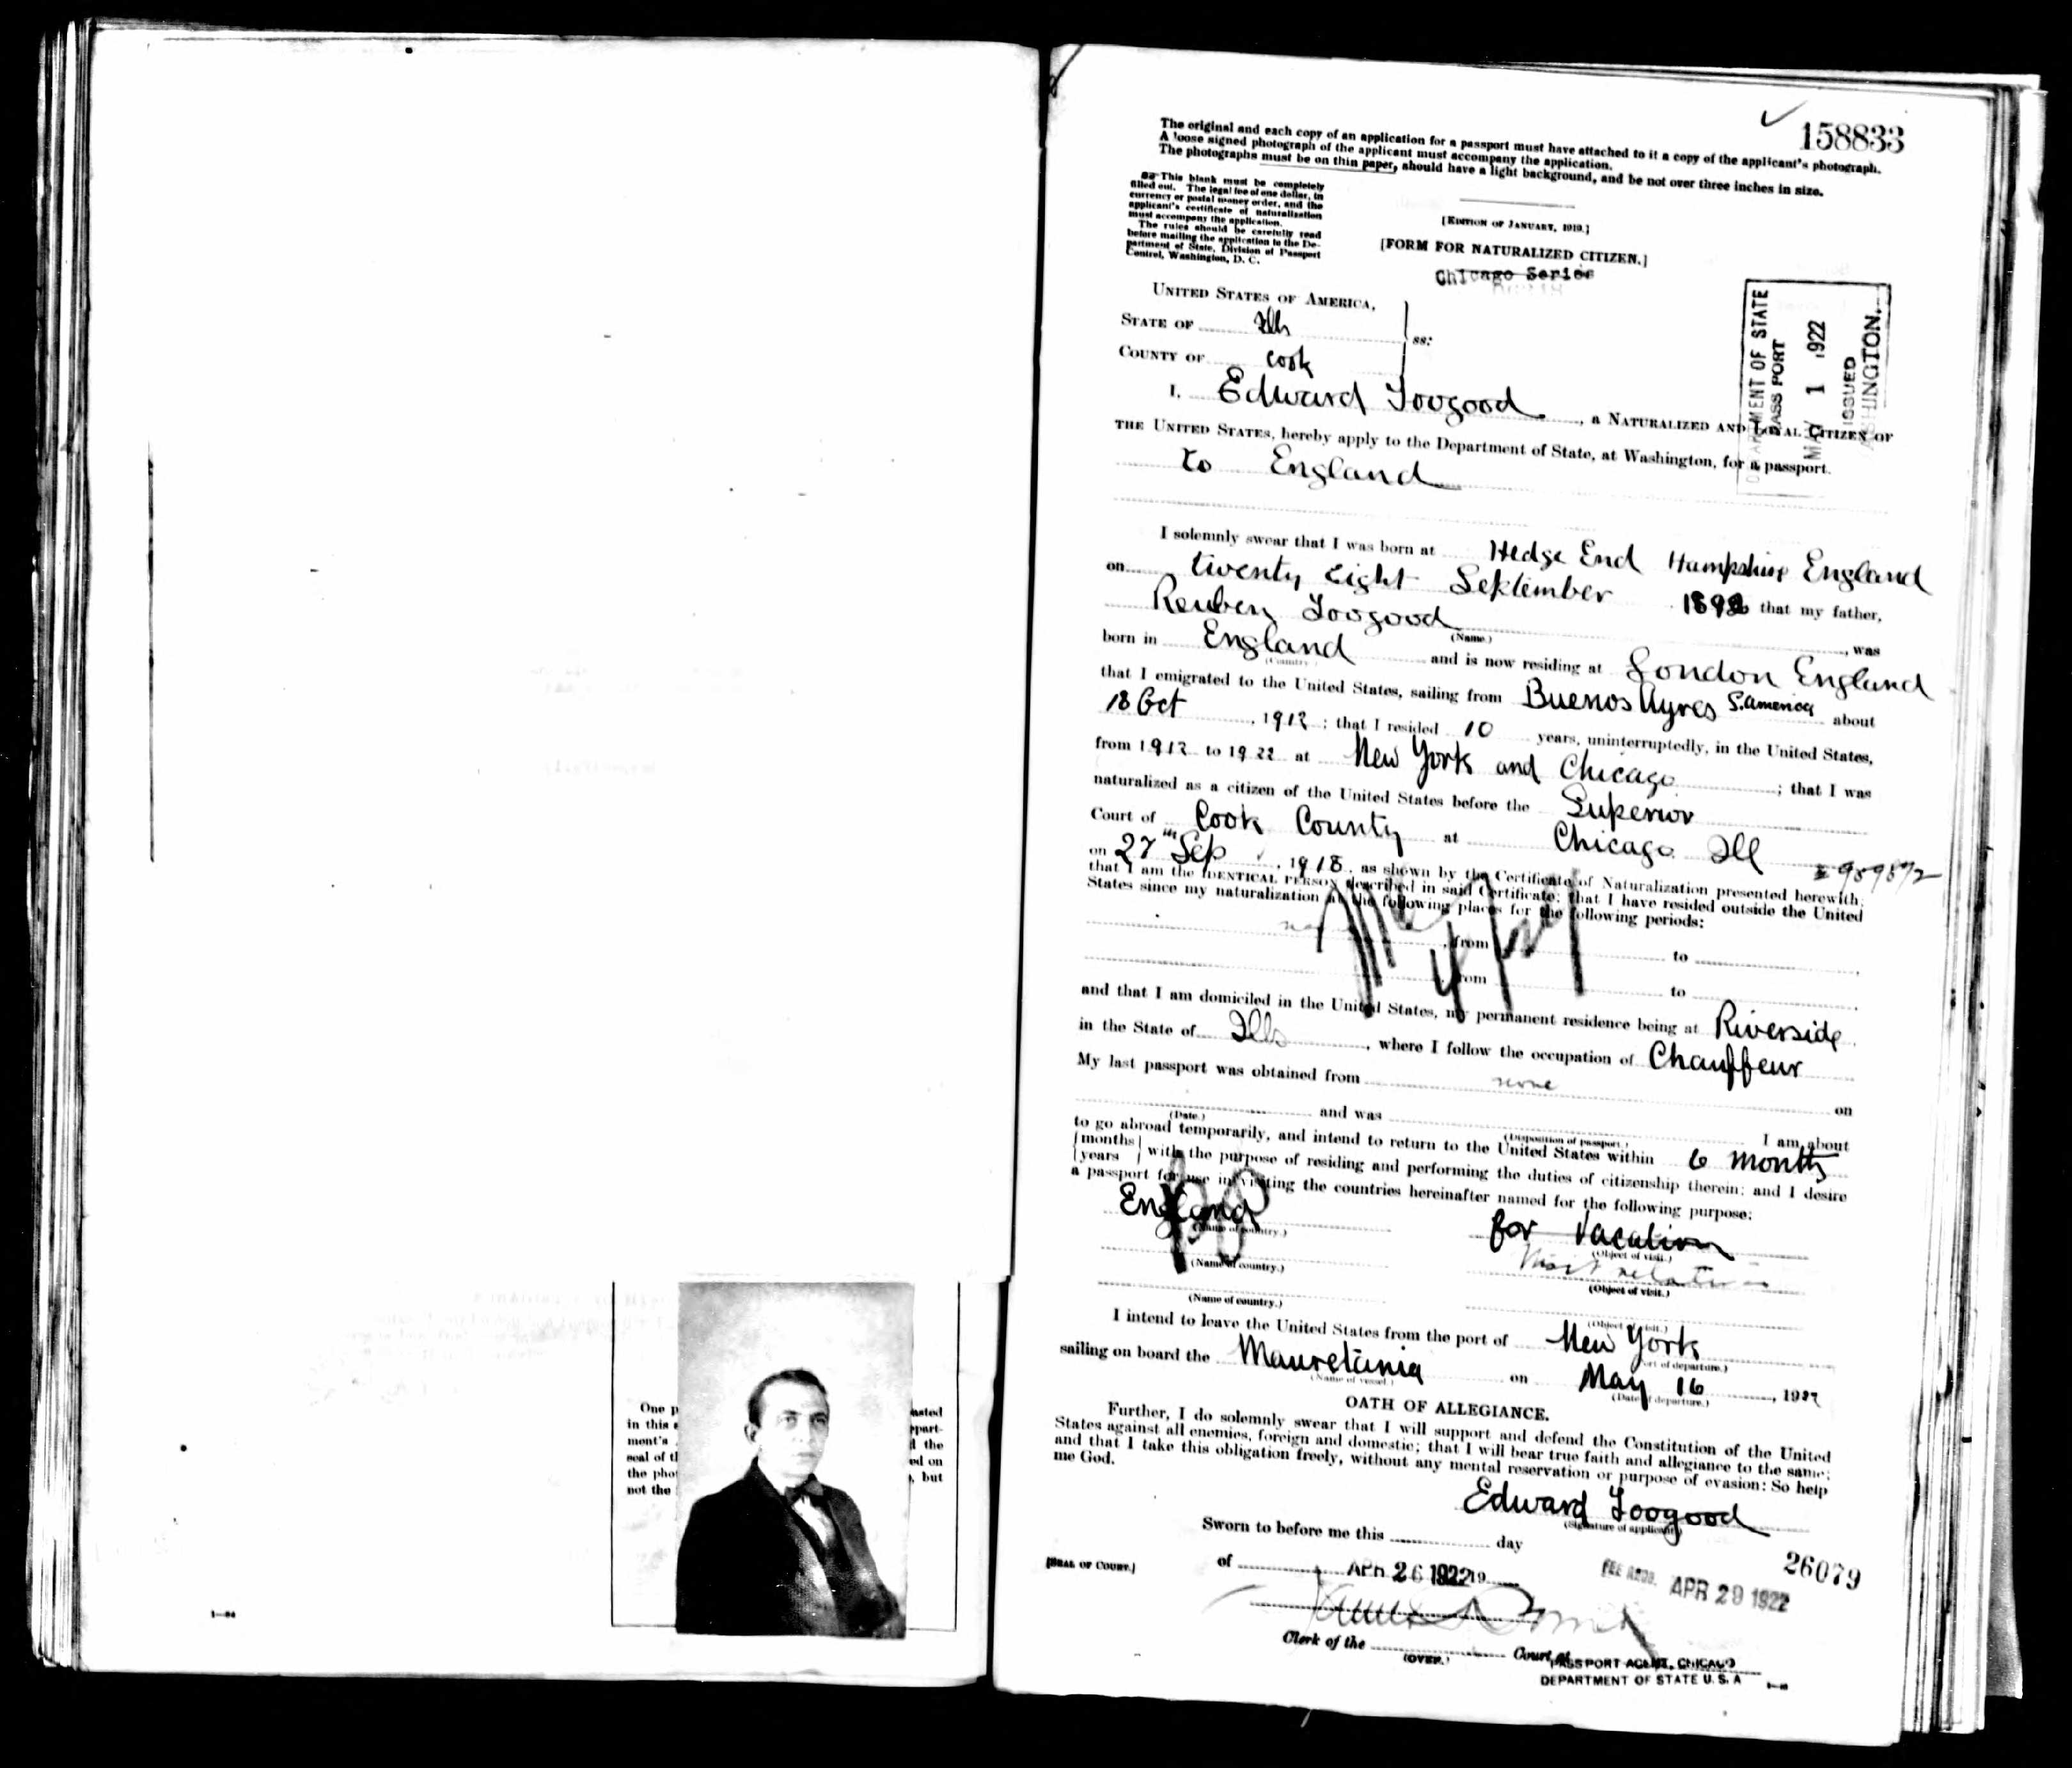 158833
The original and each copy of an application for a passport must have attached to it a copy of the applicant's photograph.
A loose signed photograph of the applicant must accompany the application.
The photographs must be on thin paper, should have a light background, and be not over three inches in size.
This blank must be completely
filled out. The legal fee of one dollar, in
currency or postal money order, and the
applicant's certificate of naturalization
must accompany the application.
The rules should be carefully read
before mailing the application to the De-
partment of State, Division of Passport
Control, Washington, D. C.
[EDITION OF JANUARY, 1919.]
[FORM FOR NATURALIZED CITIZEN.]
Chicago Series
DEPARTMENT OF STATE
PASSPORT
MAY 1 1922
ISSUED
WASHINGTON.
UNITED STATES OF AMERICA,
STATE OF Ills
ss:
COUNTY OF Cook
I, Edward Toogood, a NATURALIZED AND LOYAL CITIZEN OF
THE UNITED STATES, hereby apply to the Department of State, at Washington, for a passport.
to England
I solemnly swear that I was born at Hedge End Hampshire England
on twenty Eight September that my father,
Reuben Toogood
(Name.) , was
born in England and is now residing at London England
(Country.)
that I emigrated to the United States, sailing from Buenos Ayres S. America about
18 Oct, 1912; that I resided 10 years, uninterruptedly, in the United States,
from 1912 to 1922 at New York and Chicago; that I was
naturalized as a citizen of the United States before the Superior
Court of Cook County at Chicago Ill
on 27th Sep, 1918, as shown by the Certificate of Naturalization presented herewith;
that I am the IDENTICAL PERSON described in said Certificate; that I have resided outside the United
States since my naturalization at the following places for the following periods:
, from to ,
, from to ,
and that I am domiciled in the United States, my permanent residence being at Riverside
in the State of Ills, where I follow the occupation of Chauffeur
My last passport was obtained from none on
(Date.) and was (Disposition of passport.) I am about
to go abroad temporarily, and intend to return to the United States within 6 months
{months
{years } with the purpose of residing and performing the duties of citizenship therein; and I desire
a passport for use in visiting the countries hereinafter named for the following purpose:
England for Vacation
(Name of country.) (Object of visit.)
Visit relatives
(Name of country.) (Object of visit.)
(Name of country.) (Object of visit.)
I intend to leave the United States from the port of New York
(Port of departure.)
sailing on board the Mauretania on May 16, 1922
(Name of vessel.) (Date of departure.)
OATH OF ALLEGIANCE.
Further, I do solemnly swear that I will support and defend the Constitution of the United
States against all enemies, foreign and domestic; that I will bear true faith and allegiance to the same;
and that I take this obligation freely, without any mental reservation or purpose of evasion: So help
me God.
Edward Toogood
(Signature of applicant)
Sworn to before me this day
26079
[SEAL OF COURT.] of APR 26 1922 19
FEE RECD. APR 29 1922
Clerk of the Court at
(OVER.)
PASSPORT AGENT, CHICAGO
DEPARTMENT OF STATE U. S. A
One p
in this
ment's
seal of th
the phot
not the
asted
epart-
d the
ed on
, but